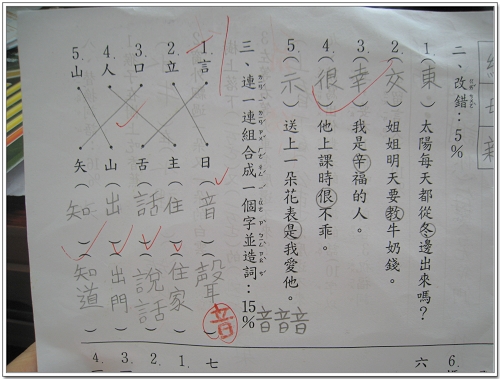 二、改錯：5%
1.(東)太陽每天都從冬邊出來嗎？
2.(交)姐姐明天要教牛奶錢。
3.(幸)我是辛福的人。
4.(很)他上課時很不乖。
5.(示)送上一朵花表是我愛他。
音音音
三、連一連組合成一個字並造詞：15%
1.言 日(音)(聲音)
2.立 主(住)(住家)
3.口 舌(話)(說話)
4.人 山(出)(出門)
5.山 矢(知)(知道)
6.
六
七
1.
2.
3.
4.